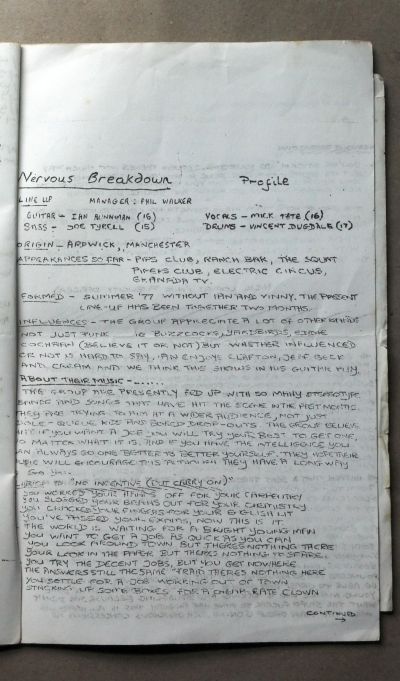 Nervous Breakdown Profile
LINE UP MANAGER : PHIL WALKER
GUITAR - IAN RUNNMAN (16) VOCALS - MICK TATE (16)
BASS - JOE TYRELL (15) DRUMS - VINCENT DUGDALE (17)
ORIGIN - ARDWICK, MANCHESTER
APPEARANCES SO FAR - PIPS CLUB, RANCH BAR, THE SQUAT
PIPERS CLUB, ELECTRIC CIRCUS,
GRANADA TV.
FORMED - SUMMER '77 WITHOUT IAN AND VINNY. THE PRESENT
LINE-UP HAS BEEN TOGETHER TWO MONTHS.
INFLUENCES - THE GROUP APPRECIATE A LOT OF OTHER
NOT JUST PUNK BUZZCOCKS, YARDBIRDS, EDDIE
COCHRAN (BELIEVE IT OR NOT) BUT WHETHER INFLUENCED
OR NOT IS HARD TO SAY. IAN ENJOYS CLAPTON, JEFF BECK
AND CREAM AND WE THINK THIS SHOWS IN HIS GUITAR PLAY.
ABOUT THEIR MUSIC -......
THE GROUP ARE PRESENTLY FED UP WITH SO MANY STEREOTYPE
AND SONGS THAT HAVE HIT THE SCENE IN THE PAST MONTHS.
THEY ARE TRYING TO AIM AT A WIDER AUDIENCE, NOT JUST
DOLE-QUEUE KIDS AND BORED DROP-OUTS. THE GROUP BELIEVE
IF YOU WANT A JOB YOU WILL TRY YOUR BEST TO GET ONE,
NO MATTER WHAT IT IS. AND IF YOU HAVE THE INTELLIGENCE YOU
CAN ALWAYS GO ONE BETTER TO BETTER YOURSELF. THEY HOPE THEIR
MUSIC WILL ENCOURAGE THIS ALTHOUGH THEY HAVE A LONG WAY
GO YET.
LYRICS TO "NO INCENTIVE (BUT CARRY ON)"
YOU WORKED YOUR HANDS OFF FOR YOUR CARPENTRY
YOU SLOGGED YOUR BRAINS OUT FOR YOUR CHEMISTRY
YOU CRACKED YOUR FINGERS FOR YOUR ENGLISH LIT
YOU'VE PASSED YOUR EXAMS, NOW THIS IS IT
THE WORLD IS WAITING FOR A BRIGHT YOUNG MAN
YOU WANT TO GET A JOB AS QUICK AS YOU CAN
YOU LOOK AROUND TOWN BUT THERE'S NOTHING THERE
YOUR LOOK IN THE PAPER BUT THERE'S NOTHING TO SPARE.
YOU TRY THE DECENT JOBS, BUT YOU GET NOWHERE
THE ANSWERS STILL THE SAME "FRAID THERE'S NOTHING HERE
YOU SETTLE FOR A JOB WORKING OUT OF TOWN
STACKING UP SOME BOXES FOR A RATE CLOWN
CONTINUED
→